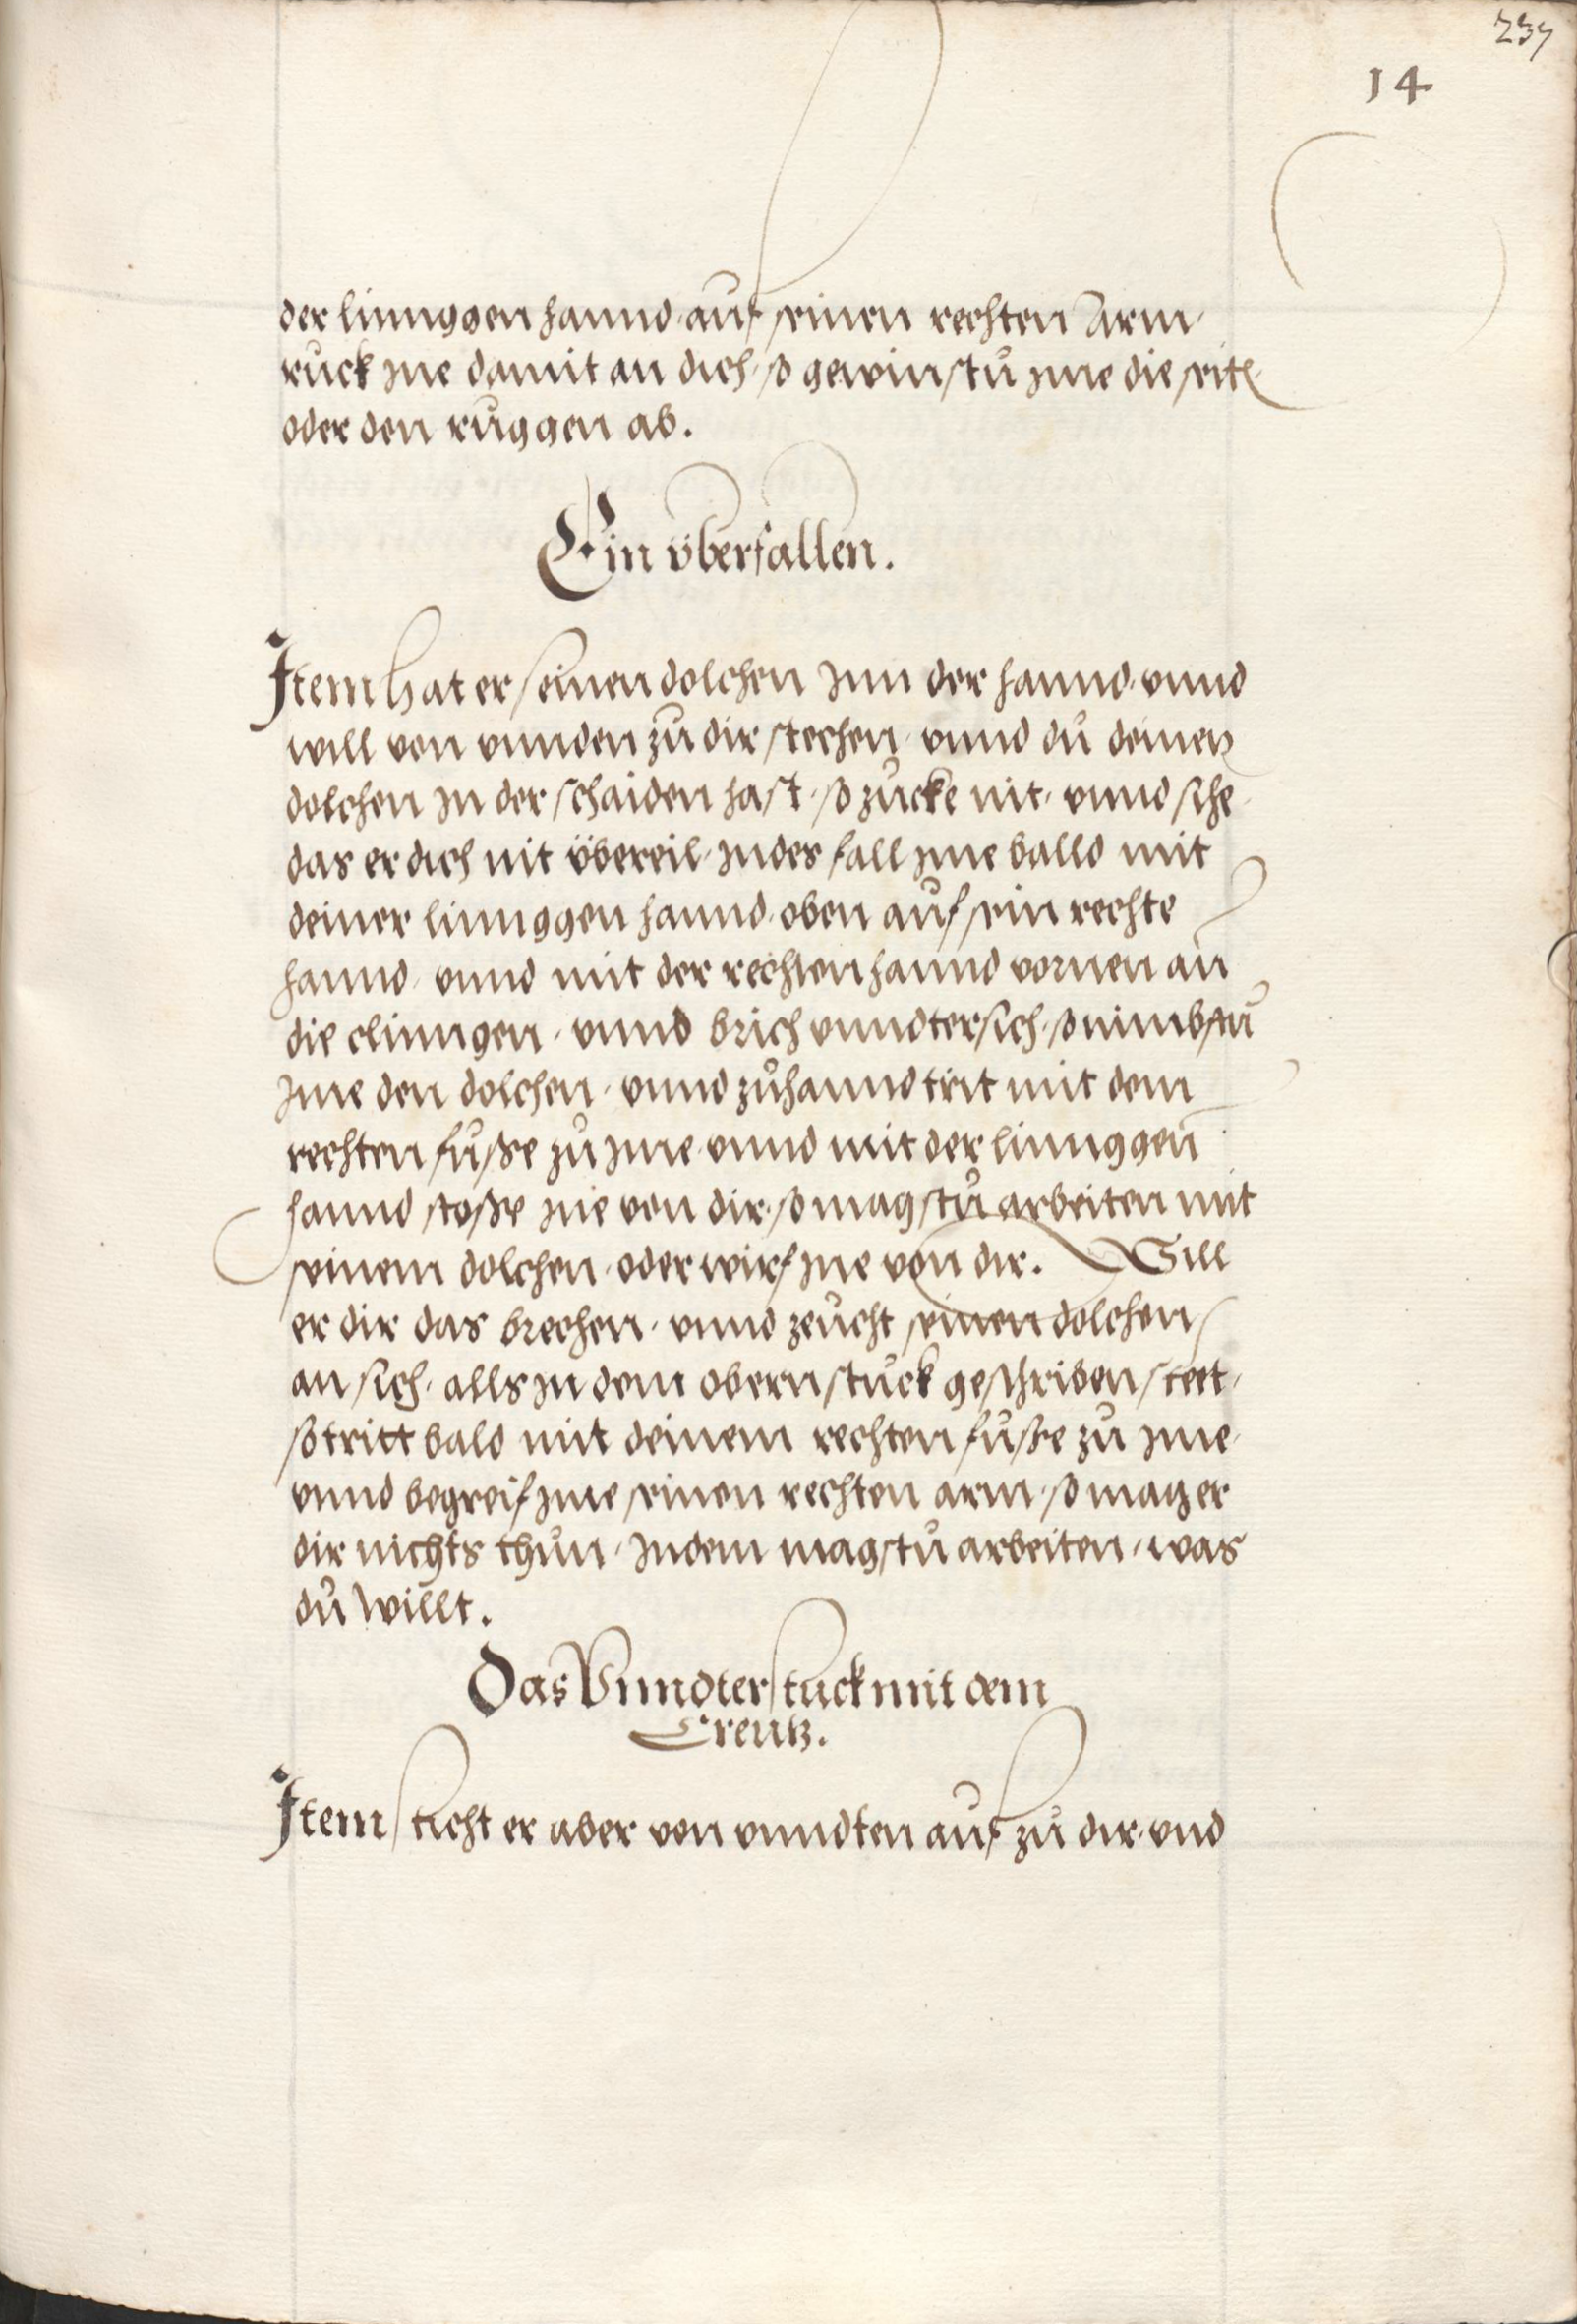 237
14
der linnggen hannd auf seinen rechten Arm,
ruck jne damit an dich, so gewinstu jme die seite
oder den ruggen ab.
Ein überfallen.
Item hat er seinen dolchen Inn der hannd, vnnd
will von vnnden zu dir stechen, vnnd du deinen
dolchen in der schaiden hast, so zucke nit, vnnd sihe
das er dich nit übereil, Indes fall jme balld mit
deiner linnggen hannd, oben auf sein rechte
hannd, vnnd mit der rechten hannd vornen an
die clinngen, vnnd brich vnndtersich, so nimbstu
Ime den dolchen, vnnd zuhannd trit mit dem
rechten fuße zu jme, vnnd mit der linnggen
hannd stoße jne von dir, so magstu arbeiten mit
seinem dolchen, oder wirf jne von dir. Will
er dir das brechen, vnnd zeucht seinen dolchen
an sich, alls in dem obern stuck geschriben steet,
so tritt bald mit deinem rechten fuße zu jme,
vnnd begreif jme seinen rechten arm, so mag er
dir nichts thun, Indem magstu arbeiten, was
du willt.
Das Vnndter stuck mit dem
Creutz.
Item sticht er aber von vnndten auf zu dir, vnd